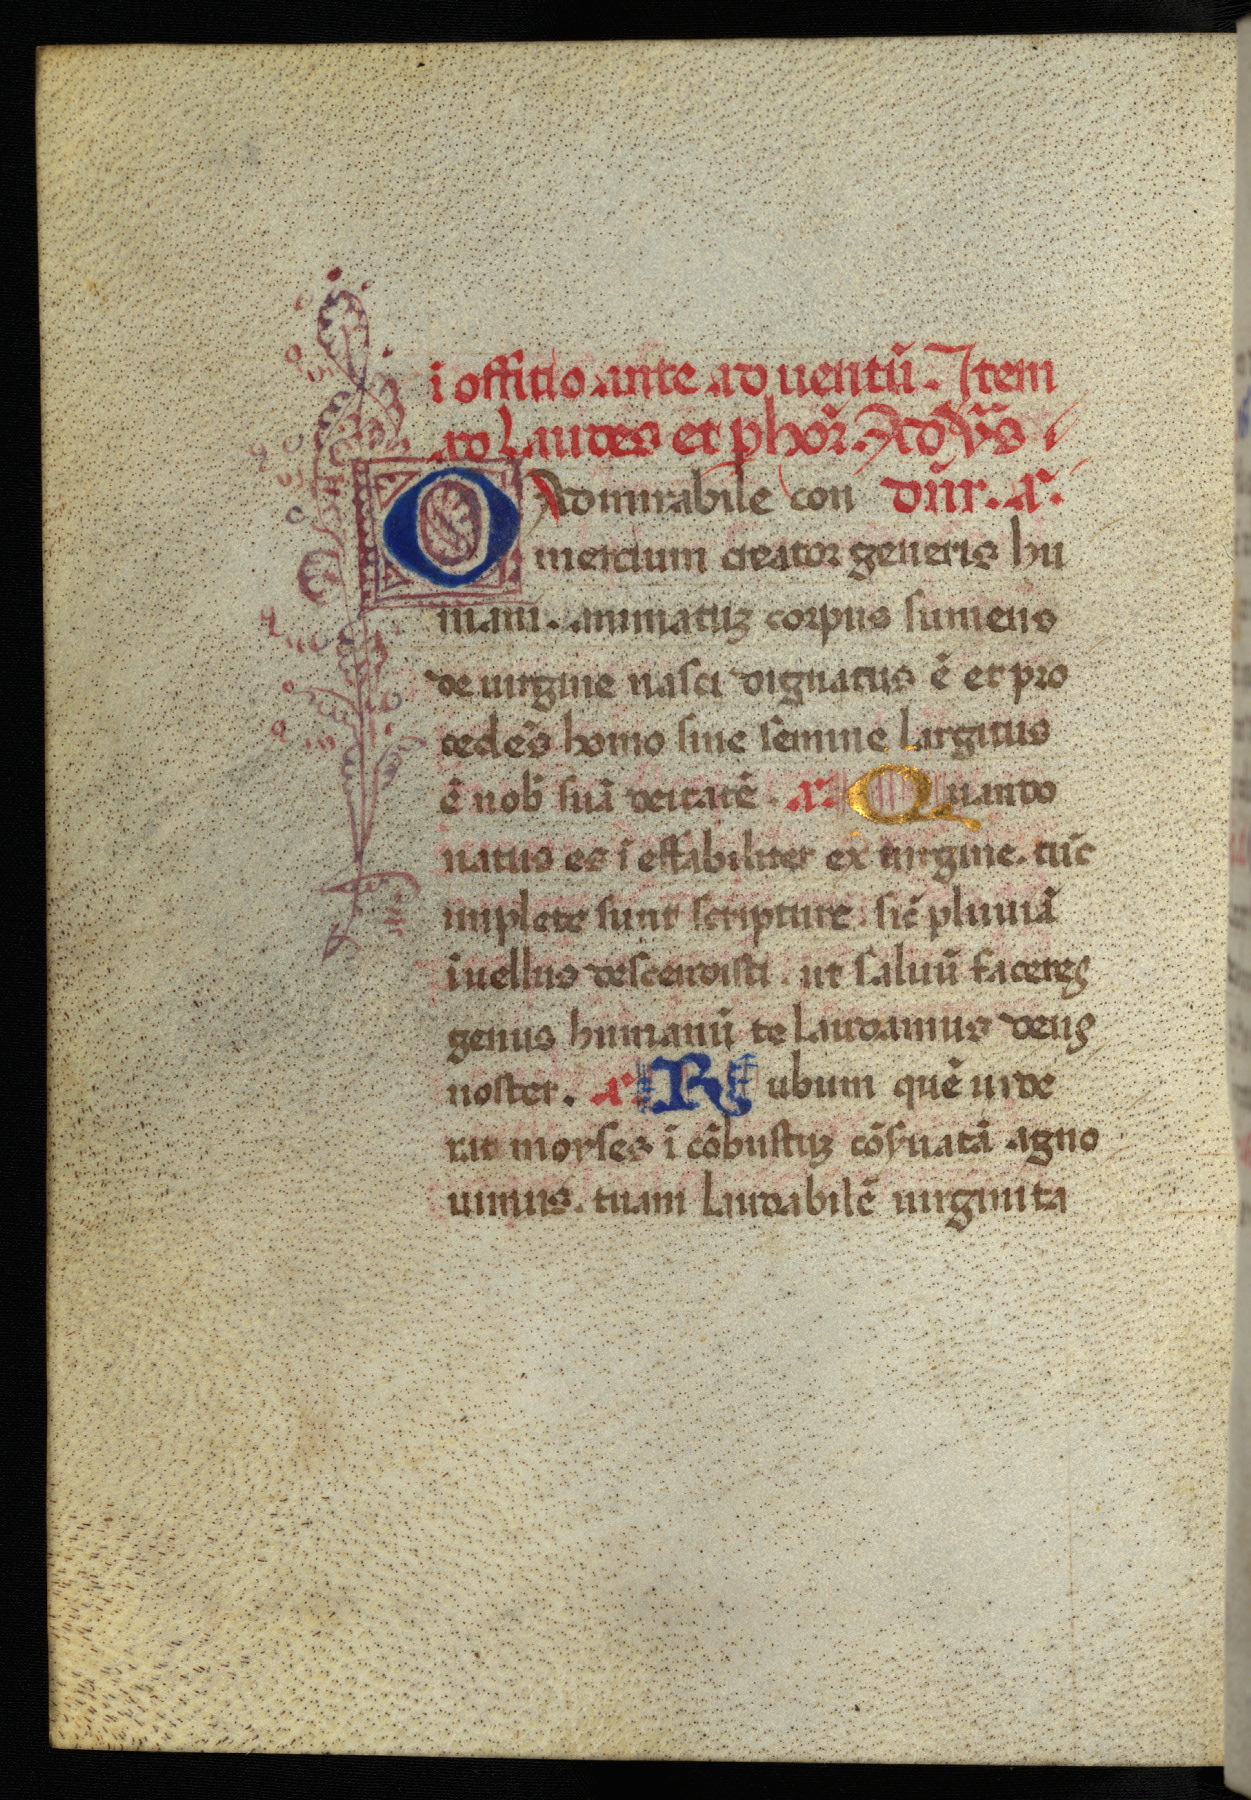 ī offitio ante aduentū. Item
ad Laudes et p horͣ. Ad Vͣs
O Admirabile con dn̄r. a.
mercium creator generis hu
mani. animatuꝫ corpus sumens
de uirgine nasci dignatus ē et pro
cedēs homo sine semine largitus
ē nob̄ suā deitatē. a. Quando
natus es īeffabiliter ex uirgine. tūc
implete sunt scripture. sic̄ pluuiā
ī uellus descendisti. ut saluū faceres
genus humanū te laudamus deus
noster. a. Rubum quē uide
rat moyses ī cōbustuꝫ cōẜuatā agno
uimus. tuam laudabilē uirginita